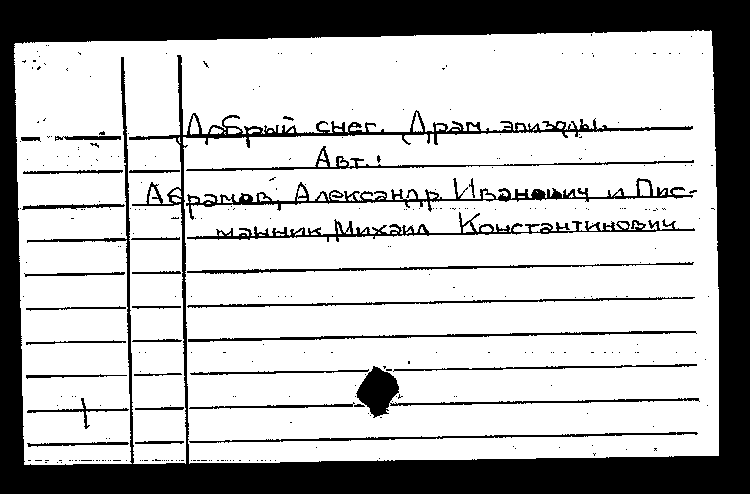 Добрый снег. Драм. эпизоды.
Авт.:
Абрамов, Александр Иванович и Пис-
манник, Михаил Константинович